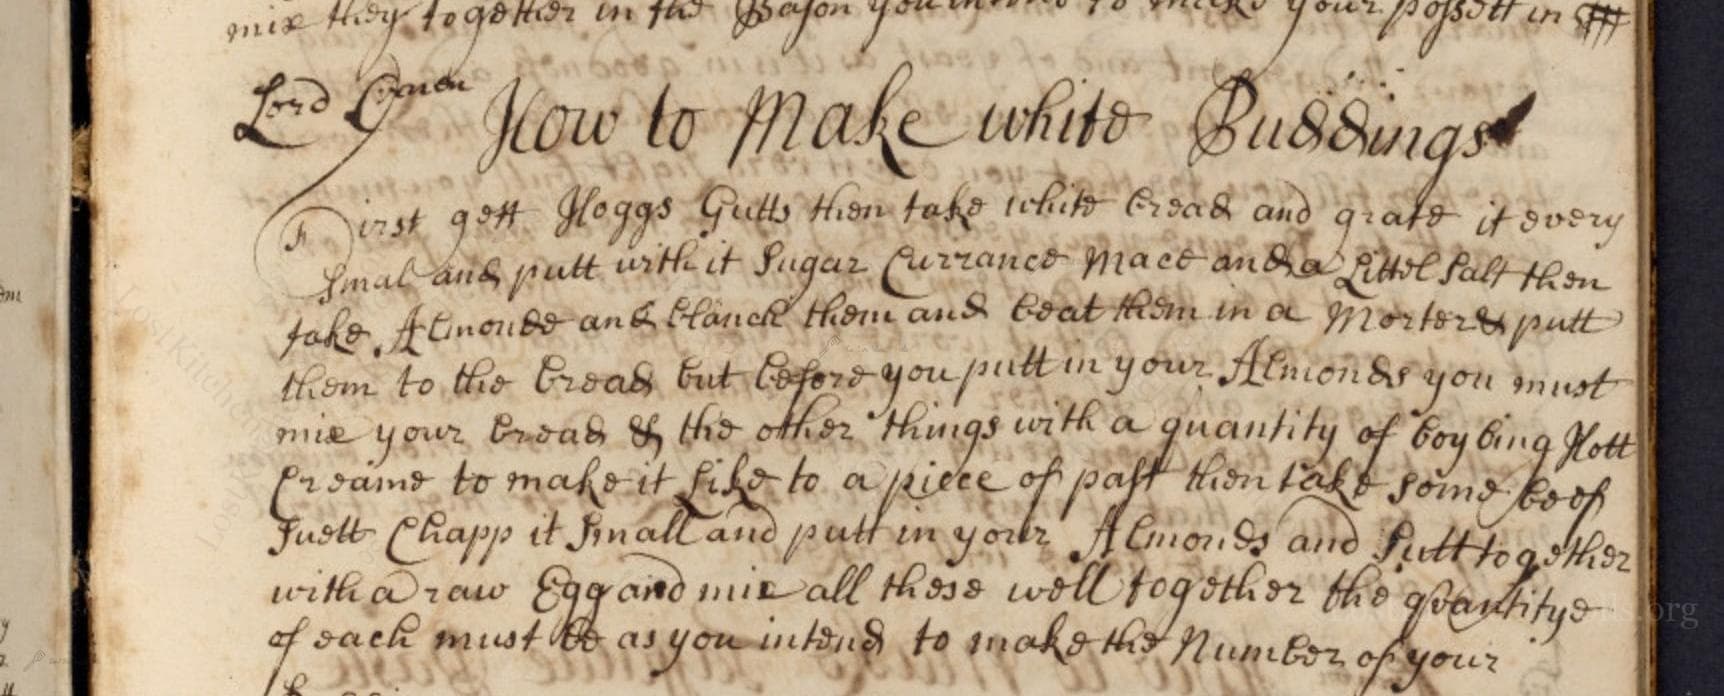 mix they together in the Bason you intend to make your possett in
Lord
How to Make white Puddings
First gett Hoggs Gutts then take white bread and grate it every
smal and putt with it Sugar Currance Mace and a Littel Salt then
take Almonds and blanch them and beat them in a Morter & putt
them to the bread but before you putt in your Almonds you must
mix your bread & the other things with a quantity of boyling Hott
Creame to make it Like to a piece of past then take some beef
Suett Chapp it Small and putt in your Almonds and Sutt together
with a raw Egg and mix all these well together the quantitye
of each must be as you intend to make the Number of your